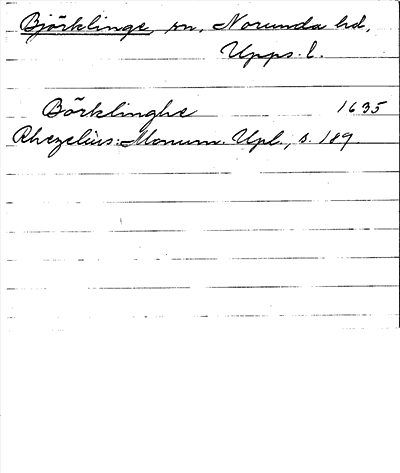 Björklinge, sn, Norunda hd,
Upps. l.
Börklinghe 1635
Rhezelius: Monum. Upl., s. 189.